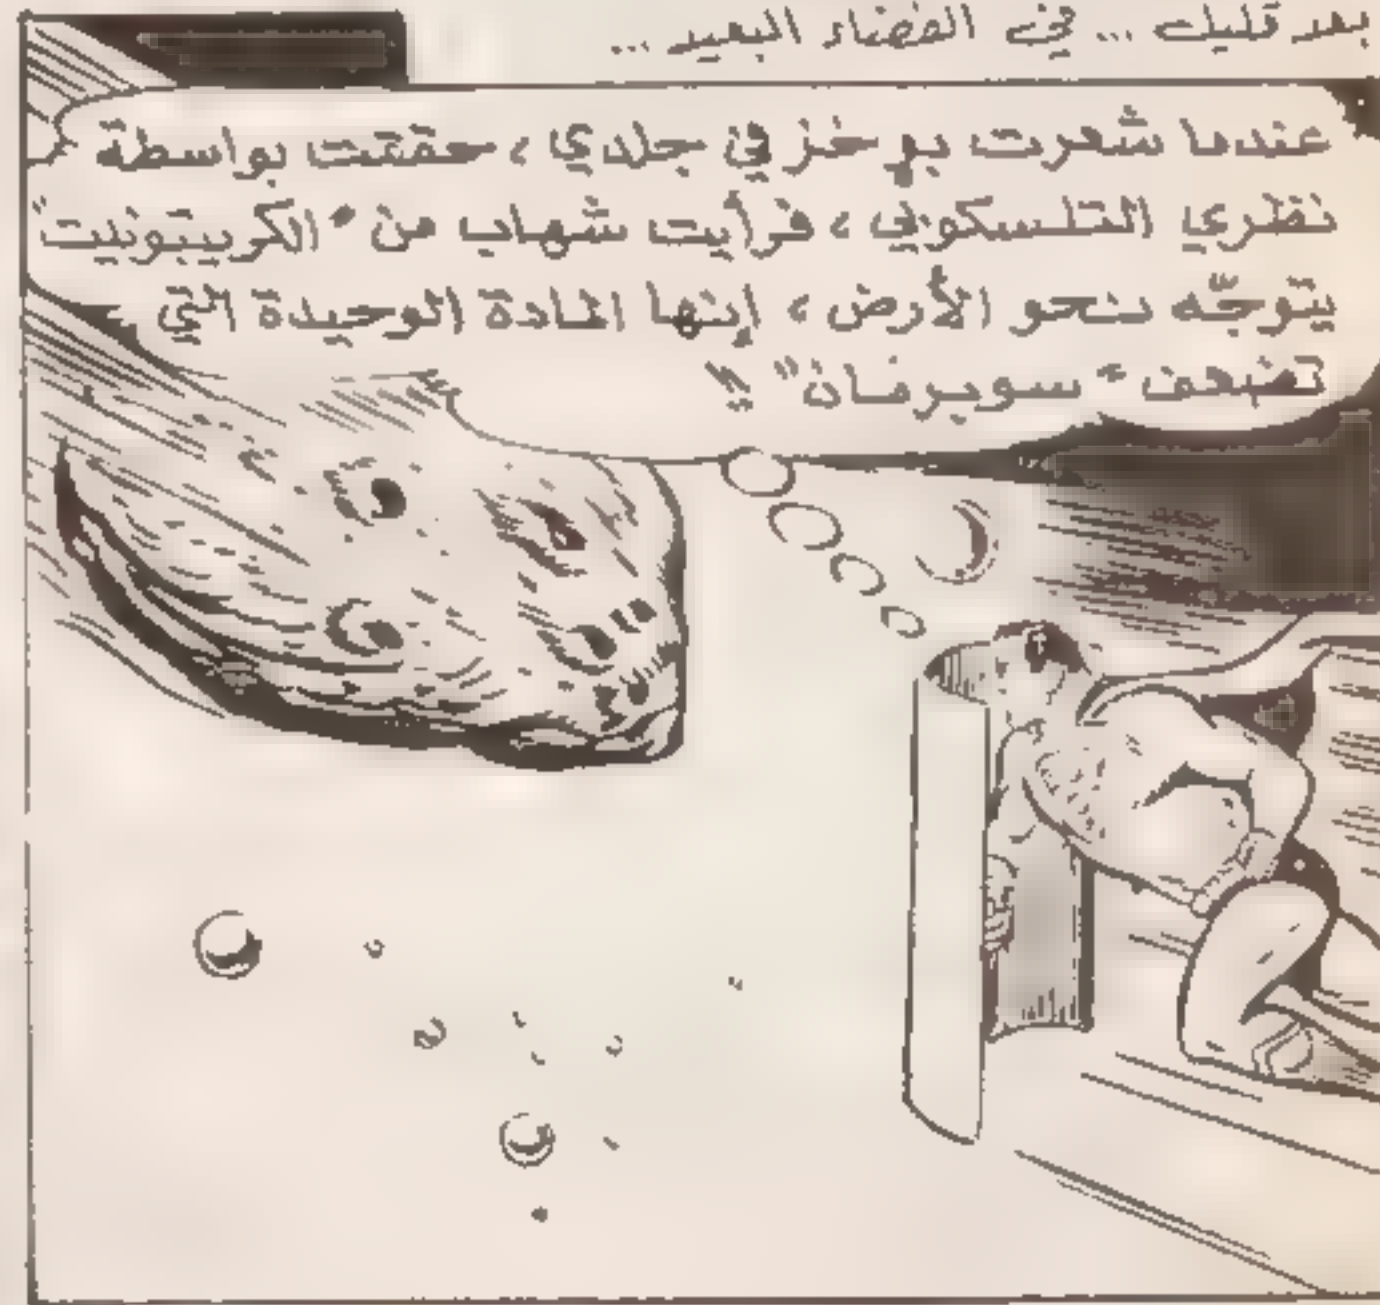 بعد قليل ... في الفضاء البعيد ...
عندما شعرت بوخز في جلدي ، حققت بواسطة
نظري التلسكوبي ، فرأيت شهاب من "الكريبتونيت"
يتوجّه نحو الأرض ، إنها المادة الوحيدة التي
تضعف "سوبرمان" !!